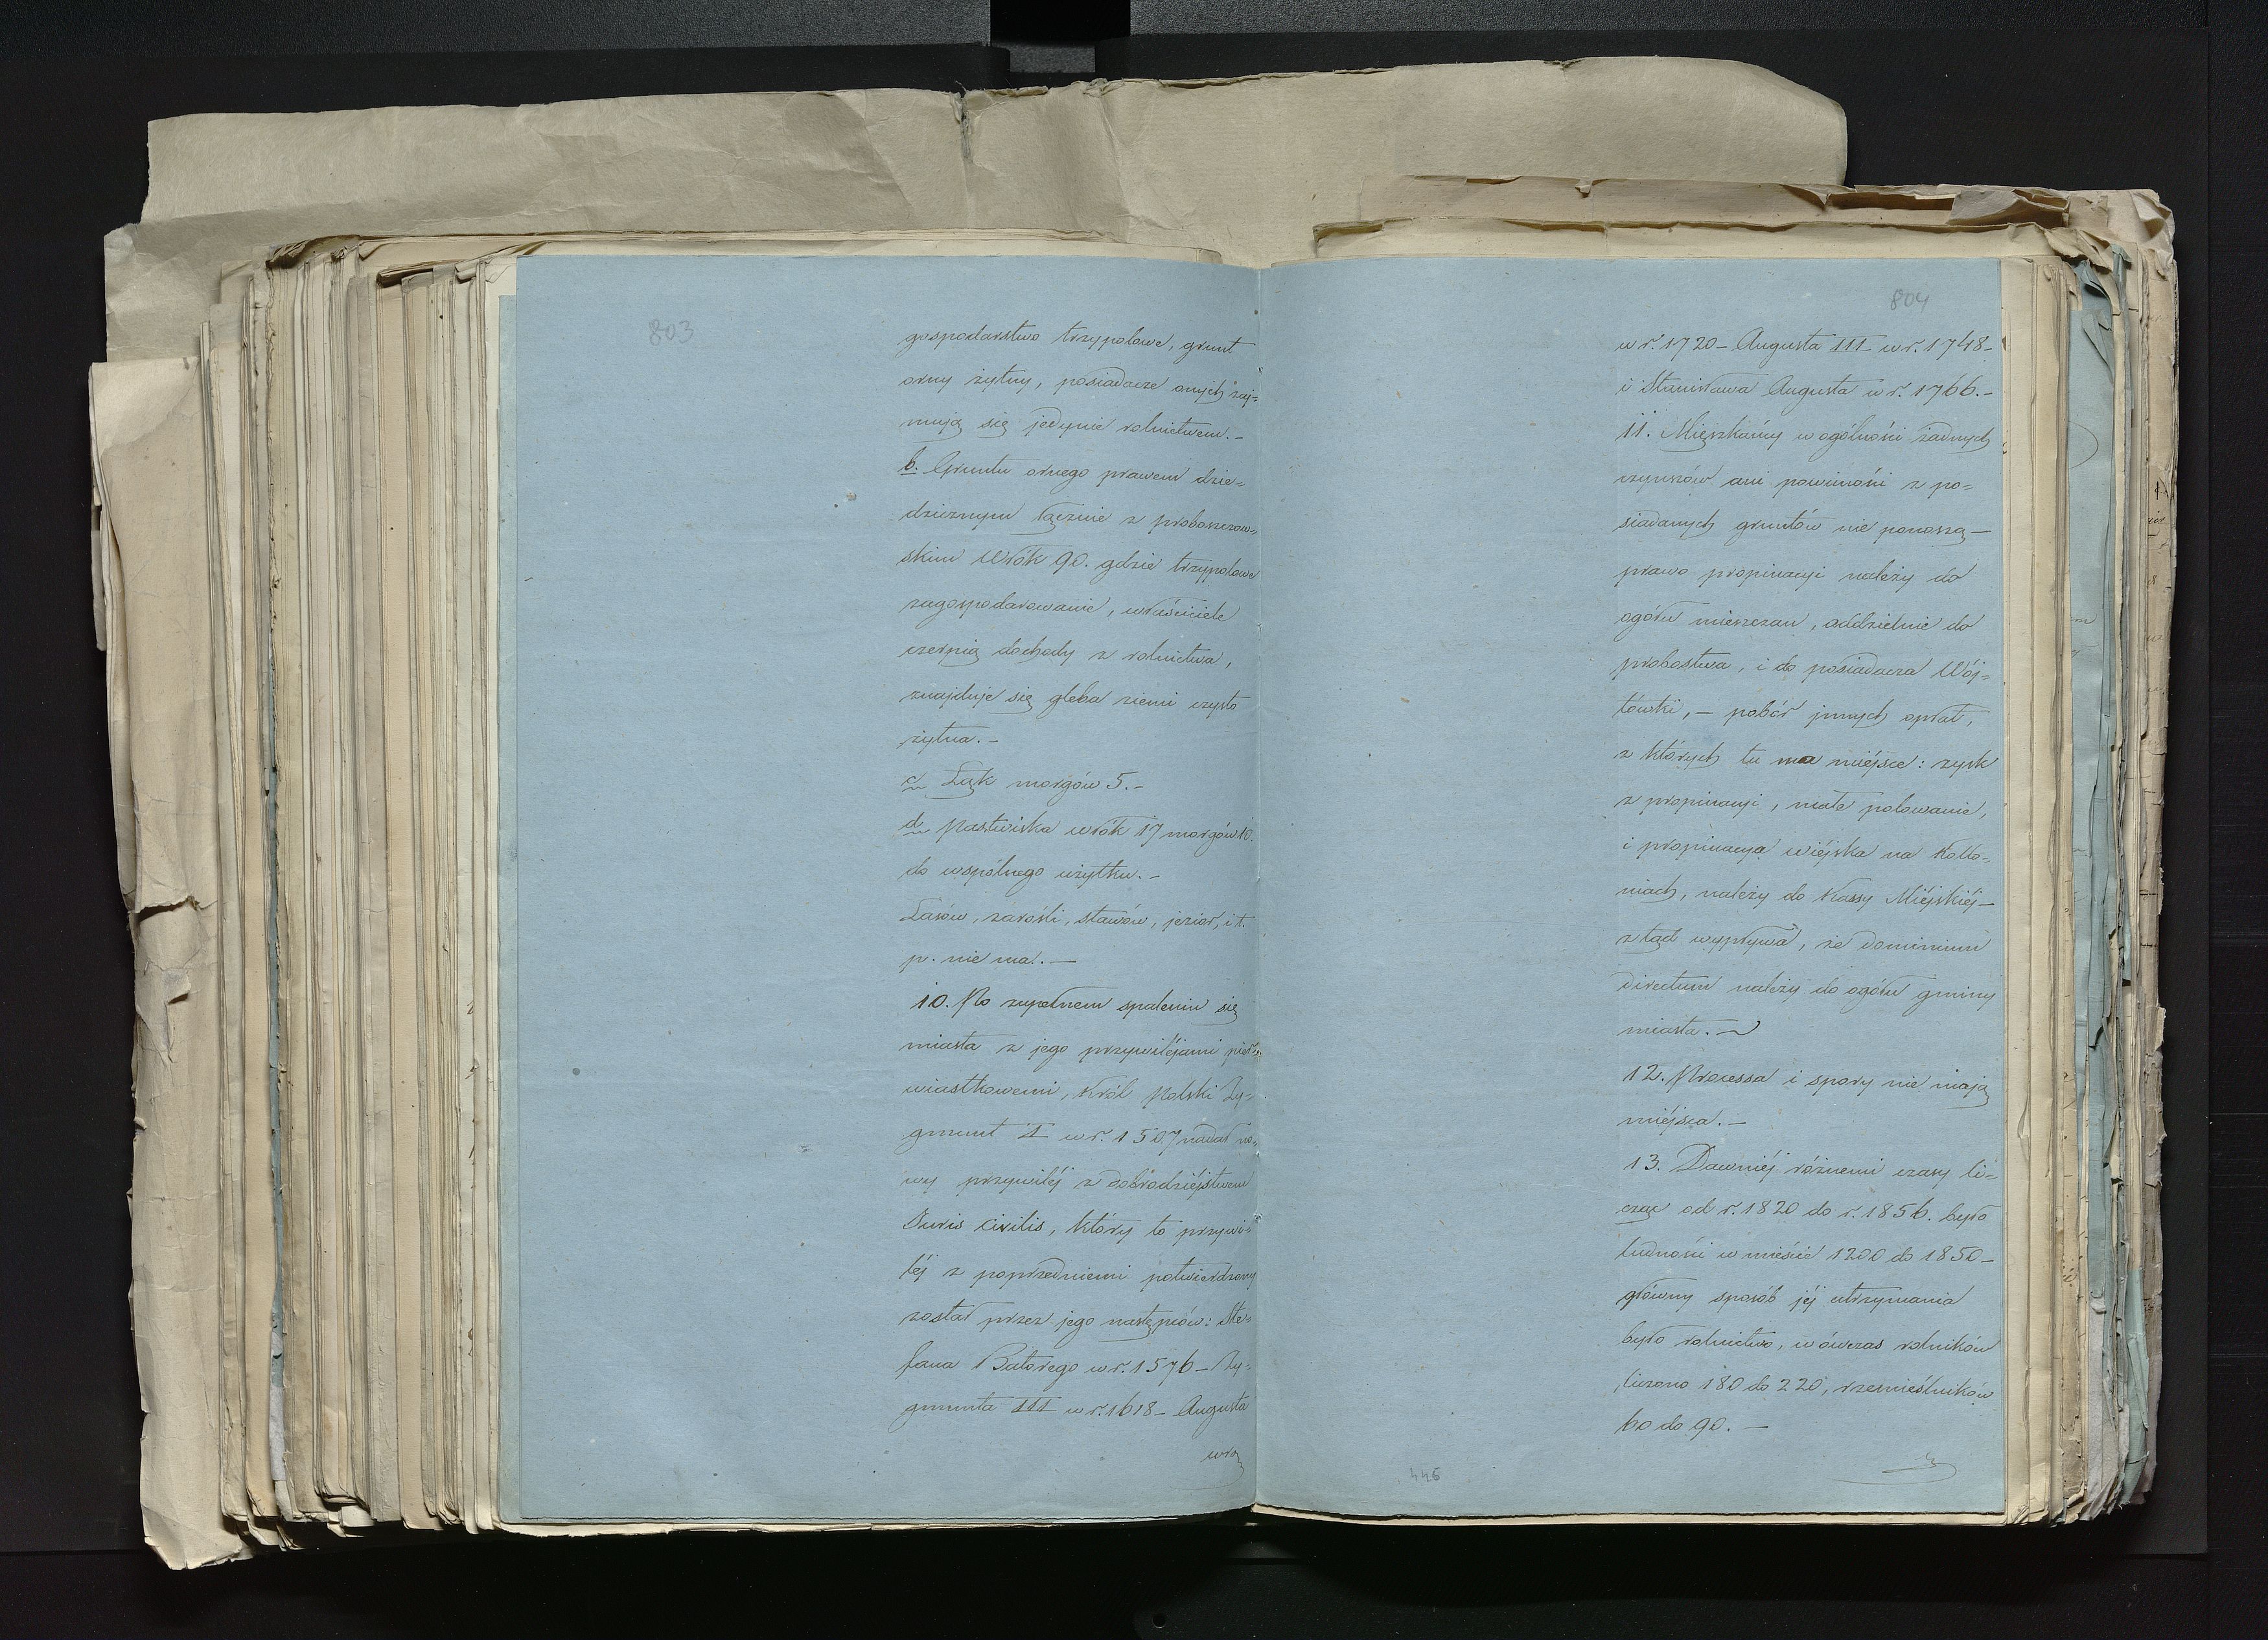 803
gospodarstwo trzypolowe, grunt
orny żytny, posiadacze onych zaj=
mują się jedynie rolnictwem.-
b. Gruntu ornego prawem dzie=
dzicznym łącznie z proboszczow=
skim Włók 90. gdzie trzypolowe
zagospodarowanie, właściciele
czerpią dochody z rolnictwa,
znajduje się gleba ziemi czysto
żytna.-
c Łąk morgów 5.-
d Pastwiska włók 17 morgów 10.
do wspólnego użytku.-
Lasów, zarośli, stawów, jezior, i t.
p. nie ma.-
10. Po zupełnem spaleniu się
miasta z jego przywilejami pier=
wiastkowemi, Król Polski Zy=
gmunt I w r. 1507 nadał no=
wy przywiléj z dobrodziéjstwem
Juris civilis, który to przywi=
léj z poprzedniemi potwierdzony
został przez jego następców: Ste=
fana Batorego w r. 1576 - Zy=
gmunta III w r. 1618 - Augusta
804
w r. 1720 - Augusta III w r. 1748 -
i Stanisława Augusta w r. 1766.-
11. Mięszkańcy w ogólności żadnych
czynszów ani powinności z po=
siadanych gruntów nie ponoszą -
prawo propinacyi należy do
ogółu mieszczan, oddzielnie do
probostwa, i do posiadacza Wój=
tówski, - pobór jnnych opłat,
z których tu ma miéjsce: zysk
z propinacyi, małe polowanie,
i propinacya wiéjska na Kollo=
niach, należy do Kassy Miéjskiéj -
ztąd wypływa, że dominium
directum należy do ogółu gminy
miasta. -
12. Processa i spory nie mają
miéjsca. -
13. Dawniéj różnemi czasy li=
cząc od r. 1820 do r. 1856. było
ludności w mieście 1200 do 1850 -
główny sposób jéj utrzymania
było rolnictwo, wówczas rolników
liczono 180 do 220, rzemieślników
60 do 90. -
446